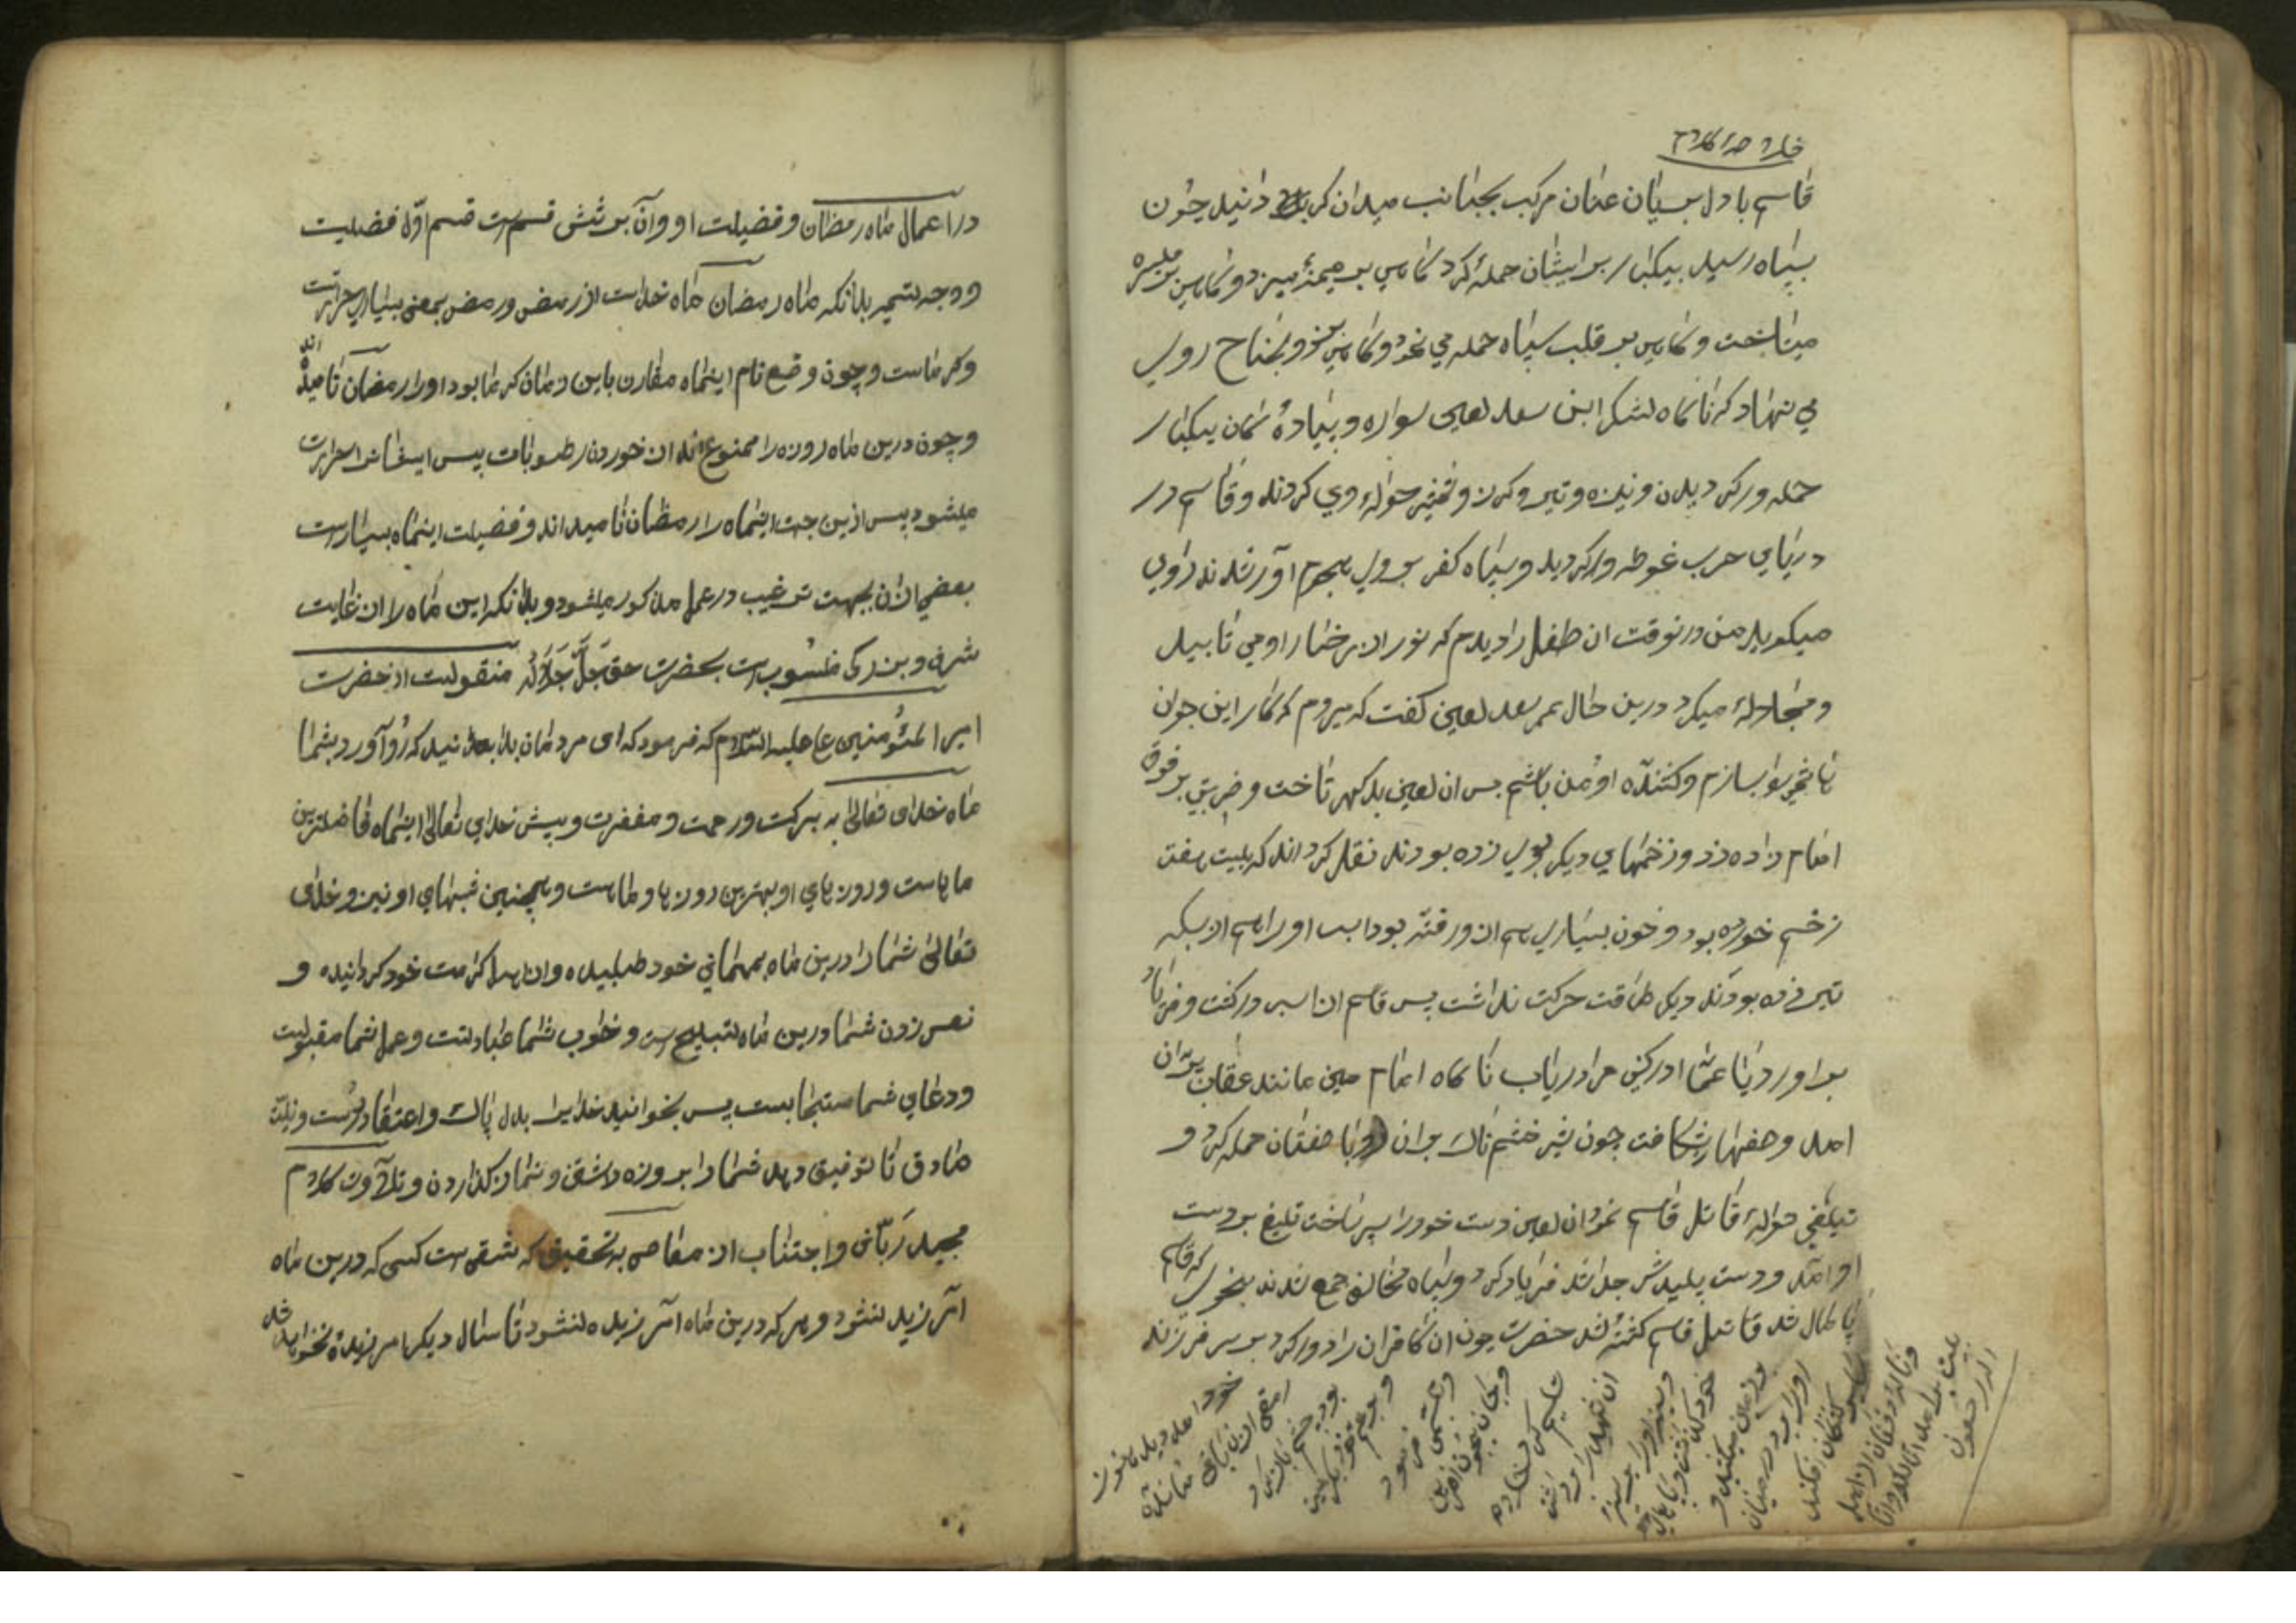 خلاصه کلام
قاسم با دل بریان عنان مرکب بجانب میدان گردانید چون
بسپاه رسید بیکبار بر ایشان حمله کرد کاهی بر میمنه میزد و کاهی بر میسره
میتاخت و کاهی بر قلب سپاه حمله می نمود و کاهی بجناح روی
می نهاد که ناکاه لشکر ابن سعد لعین سواره و پیاده کان بیکبار
حمله ور کردیدن و نیزه و تیر و کرز و تیغ حواله وی کردند و قاسم در
دریای حرب غوطه ور کردید و سپاه کفر بر وی هجوم آور شدند راوی
میکوید من در نوقت ان طفل را دیدم که نور از رخسار او می تابید
و مجادله میکرد درین حال عمر سعد لعین کفت که میروم که کار این جوان
را بسازم و کشنده او من باشم پس ان لعین بدکهر تاخت و ضربتی بر فرق
امام زاده زد و زخمهای دیکر بوی زده بودند نقل کرده اند که بیست هفت
زخم خورده بود و خون بسیاری هم از ور فته بود اسب او را هم از بسکه
تیر زده بودند دیکر طاقت حرکت نداشت پس قاسم از اسب در کشت و فریاد
براورد یا عماه ادرکنی مرا دریاب ناکاه امام مبین مانند عقاب پران
امد و صفها را شکافت چون شیر خشم ناک بران روبا صفتان حمله کرد و
تیغی حواله قاتل قاسم نمود ان لعین دست خود را سپر ساخت تیغ بر دست
او امد و دست پلیدش جدا شد فریاد کرد و سپاه مخالف جمع شدند بنحوی که قاسم
پا مال شد قاتل قاسم کشته شد حضرت چون ان کافران را دور کرد بر سر فرزند
خود امد دید تا خون
رمقی از زندکانی مانده
بود چشم باز کرد
و بر عم خود
و تبسمی فرمود
و جان بجان افرین
تسلیم کرد
ان شهید را برداشت
و سینه او را بر سینه
خود
او را برد در میان
کشتکان افکند
و ناله و فغان از اهل
بیت بلند شد انا لله و انا
الیه راجعون
در اعمال ماه رمضان و فضیلت او و آن بر شش قسم است قسم اوّل فضیلت
و وجه تسمیه بدانکه ماه رمضان ماه خداست از رمض و رمض بمعنی بسیاری حرارت
و کرماست و چون وضع نام اینماه مقارن باین زمان کرما بود او را رمضان نامیده اند
و چون درین ماه روزه را ممنوع اند از خوردن رطوبات پس ایشانرا حرارت
میشود پس ازین جت اینماه را رمضان نامیداند و فضیلت اینماه بسیارست
بعضی ازان بجهت ترغیب در عمل مذکور میشود و بدانکه این ماه را از غایت
شرف و بزرکی منسوب است بحضرت حق جَلَّ جَلالُه منقولست از حضرت
امیر المُؤمنین ع علیه السّلام که فرمود که ای مردمان بدانید که رُو آورد بشما
ماه خدای تعالی به برکت و رحمت و مغفرت و پیش خدای تعالی اینماه فاضلترین
ماهاست و روزهای او بهترین روزهاو ماست و همچنین شبهای او نیز و خدای
تعالی شما را درین ماه بمهمانی خود طلبیده و از اهل کرامت خود کردانیده و
نفس زدن شما درین ماه تسبیح است و خواب شما عبادتست و عمل شما مقبولست
و دعای شما مستجابست پس بخوانید خدایرا بدل پاک و اعتقاد درُست و نیّت
صادق تا توفیق دهد شما را بروزه داشتن و نماز کذاردن و تلآوت کلام
مجید رَبّانی و اجتناب از معاصی به تحقیق که شقی است کسی که درین ماه
امرزیده نشود و هر که درین ماه امرزیده نشود تا سال دیکر امرزیده نخواهد شد